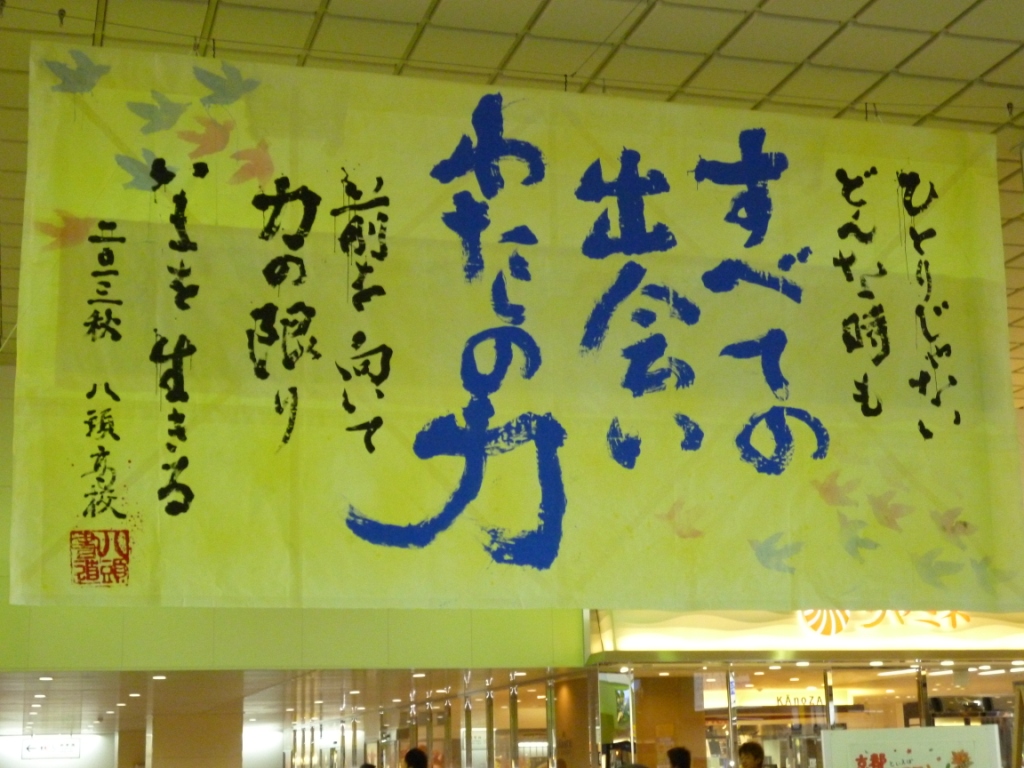 ひとりじゃない
どんな時も
すべての
出会い
わたしの力
前を向いて
力の限り
いまを生きる
二〇一三秋 八頭高校
八頭
書道
KAnoZA
京都